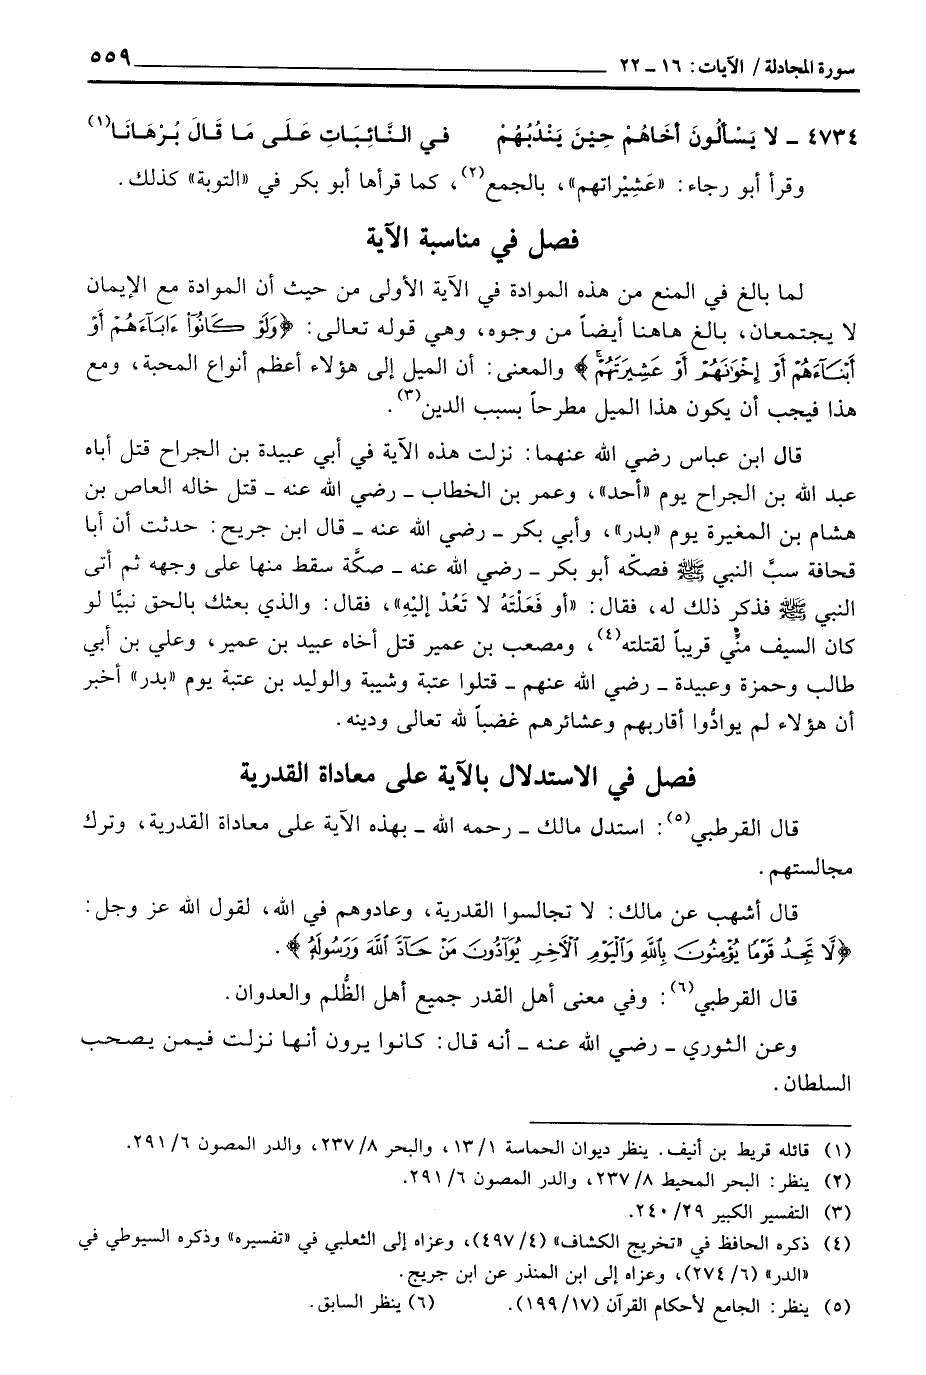 سورة المجادلة / الآيات: ١٦ - ٢٢ ٥٥٩
٤٧٣٤ - لا يَسْألُونَ أخَاهُمْ حِيْنَ يَنْدُبُهُمْ في النَّائِبَاتِ عَلَى مَا قَالَ بُرْهَانَا(١)
وقرأ أبو رجاء: «عَشِيْراتهم»، بالجمع(٢)، كما قرأها أبو بكر في «التوبة» كذلك.
فصل في مناسبة الآية
لما بالغ في المنع من هذه الموادة في الآية الأولى من حيث أن الموادة مع الإيمان
لا يجتمعان، بالغ هاهنا أيضاً من وجوه، وهي قوله تعالى: ﴿وَلَوْ كَانُوٓا ءَابَآءَهُمْ أَوْ
أَبْنَآءَهُمْ أَوْ إِخْوَٰنَهُمْ أَوْ عَشِيرَتَهُمْۚ﴾ والمعنى: أن الميل إلى هؤلاء أعظم أنواع المحبة، ومع
هذا فيجب أن يكون هذا الميل مطرحاً بسبب الدين(٣).
قال ابن عباس رضي الله عنهما: نزلت هذه الآية في أبي عبيدة بن الجراح قتل أباه
عبد الله بن الجراح يوم «أحد»، وعمر بن الخطاب - رضي الله عنه - قتل خاله العاص بن
هشام بن المغيرة يوم «بدر»، وأبي بكر - رضي الله عنه - قال ابن جريج: حدثت أن أبا
قحافة سبَّ النبي ﷺ فصكّه أبو بكر - رضي الله عنه - صكَّة سقط منها على وجهه ثم أتى
النبي ﷺ فذكر ذلك له، فقال: «أو فَعَلْتَهُ لا تَعُدْ إليْهِ»، فقال: والذي بعثك بالحق نبيًّا لو
كان السيف منِّي قريباً لقتلته(٤)، ومصعب بن عمير قتل أخاه عبيد بن عمير، وعلي بن أبي
طالب وحمزة وعبيدة - رضي الله عنهم - قتلوا عتبة وشيبة والوليد بن عتبة يوم «بدر» أخبر
أن هؤلاء لم يوادُّوا أقاربهم وعشائرهم غضباً لله تعالى ودينه.
فصل في الاستدلال بالآية على معاداة القدرية
قال القرطبي(٥): استدل مالك - رحمه الله - بهذه الآية على معاداة القدرية، وترك
مجالستهم.
قال أشهب عن مالك: لا تجالسوا القدرية، وعادوهم في الله، لقول الله عز وجل:
﴿لَّا تَجِدُ قَوْمًا يُؤْمِنُونَ بِٱللَّهِ وَٱلْيَوْمِ ٱلْأَخِرِ يُوَآدُّونَ مَنْ حَآدَّ ٱللَّهَ وَرَسُولَهُ﴾.
قال القرطبي(٦): وفي معنى أهل القدر جميع أهل الظُّلم والعدوان.
وعن الثوري - رضي الله عنه - أنه قال: كانوا يرون أنها نزلت فيمن يصحب
السلطان.
(١) قائله قريط بن أنيف. ينظر ديوان الحماسة ١٣/١، والبحر ٢٣٧/٨، والدر المصون ٢٩١/٦.
(٢) ينظر: البحر المحيط ٢٣٧/٨، والدر المصون ٢٩١/٦.
(٣) التفسير الكبير ٢٤٠/٢٩.
(٤) ذكره الحافظ في «تخريج الكشاف» (٤٩٧/٤)، وعزاه إلى الثعلبي في «تفسيره» وذكره السيوطي في
«الدر» (٢٧٤/٦)، وعزاه إلى ابن المنذر عن ابن جريج.
(٥) ينظر: الجامع لأحكام القرآن (١٩٩/١٧). (٦) ينظر السابق.